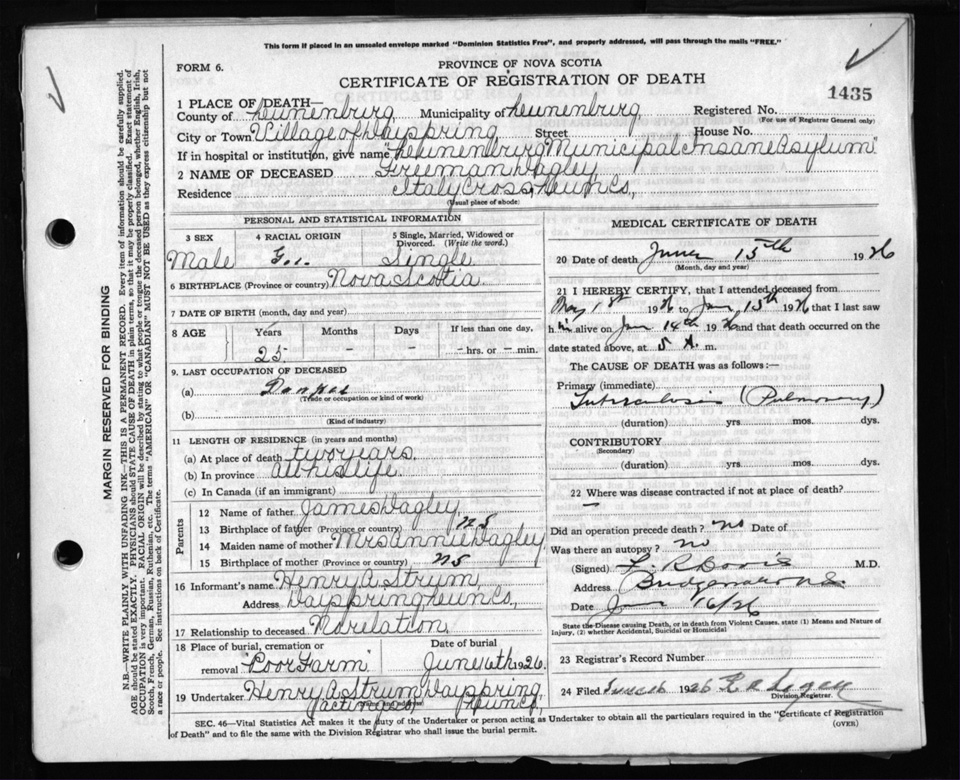 This form if placed in an unsealed envelope marked "Dominion Statistics Free", and properly addressed, will pass through the mails "FREE."
FORM 6.
PROVINCE OF NOVA SCOTIA
CERTIFICATE OF REGISTRATION OF DEATH
1435
1 PLACE OF DEATH—
County of Lunenburg, Municipality of Lunenburg, Registered No.
(For use of Registrar General only)
City or Town Village of Dayspring Street House No.
If in hospital or institution, give name "Lunenburg Municipal Insane Asylum"
2 NAME OF DECEASED Freeman Dagley
Residence Italy Cross, Lun Co,
(Usual place of abode)
PERSONAL AND STATISTICAL INFORMATION
3 SEX
Male
4 RACIAL ORIGIN
5 Single, Married, Widowed or Divorced. (Write the word.)
Single
6 BIRTHPLACE (Province or country) Nova Scotia
7 DATE OF BIRTH (month, day and year)
8 AGE Years Months Days If less than one day.
25 - - - hrs. or - min.
9. LAST OCCUPATION OF DECEASED
(a)
(Trade or occupation or kind of work)
(b)
(Kind of industry)
11 LENGTH OF RESIDENCE (in years and months)
(a) At place of death two years,
(b) In province all his life
(c) In Canada (if an immigrant)
Parents
12 Name of father James Dagley
13 Birthplace of father (Province or country) NS
14 Maiden name of mother Mrs Annie Dagley
15 Birthplace of mother (Province or country) NS
16 Informant's name Henry A Strum,
Address Dayspring Lun Co,
17 Relationship to deceased No relation,
18 Place of burial, cremation or removal "Poor Farm"
Date of burial June 16th 1926
19 Undertaker Henry A Strum Dayspring,
(Name and address)
acting as Lun Co
MEDICAL CERTIFICATE OF DEATH
20 Date of death June 15th 1926
(Month, day and year)
21 I HEREBY CERTIFY, that I attended deceased from
May 1st 1926 to June 15th 1926 that I last saw
h im alive on June 14th 1926 and that death occurred on the
date stated above, at 5 A. m.
The CAUSE OF DEATH was as follows:—
Primary (immediate)
Tuberculosis (Pulmonary)
(duration) yrs. mos. dys.
CONTRIBUTORY
(Secondary)
(duration) yrs. mos. dys.
22 Where was disease contracted if not at place of death?
—
Did an operation precede death? no Date of
Was there an autopsy? no
(Signed) M.D.
Address Bridgewater N.S.
Date June 16/26
State the Disease causing Death, or in death from Violent Causes, state (1) Means and Nature of Injury, (2) whether Accidental, Suicidal or Homicidal
23 Registrar's Record Number
24 Filed June 16 1926
Division Registrar.
SEC. 46—Vital Statistics Act makes it the duty of the Undertaker or person acting as Undertaker to obtain all the particulars required in the "Certificate of Registration of Death" and to file the same with the Division Registrar who shall issue the burial permit.
(OVER)
MARGIN RESERVED FOR BINDING
N.B.—WRITE PLAINLY WITH UNFADING INK—THIS IS A PERMANENT RECORD. Every item of information should be carefully supplied.
AGE should be stated EXACTLY. PHYSICIANS should STATE CAUSE OF DEATH in plain terms, so that it may be properly classified. Exact statement of
OCCUPATION is very important. RACIAL ORIGIN will be described by stating to what people or tongue the deceased person belonged, whether English, Irish,
Scotch, French, German, Russian, Ruthenian, etc. The terms "AMERICAN" OR "CANADIAN" MUST NOT BE USED as they express citizenship but not
a race or people. See instructions on back of Certificate.